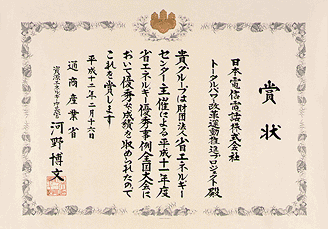 賞状
日本電信電話株式会社
トータルパワー改革運動推進プロジェクト殿
貴グループは財団法人省エネルギー
センター主催による平成十一年度
省エネルギー優秀事例全国大会に
おいて優秀な成績を収められたので
これを賞します
平成十二年二月十六日
通商産業省
資源エネルギー庁長官
河野博文